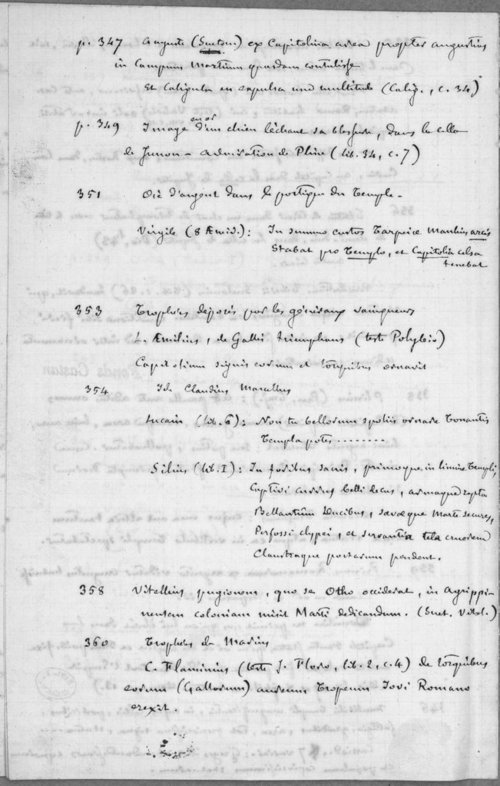 p. 347 Auguste (Sueton) ex Capitolina area propter angustias
in Campum Martium quasdam contulisse
et Caligula en expulsa une multitude (Calig., c. 34)
p. 349 Image en or d'un chien léchant sa blessure, dans la cella
de Junon - Admiration de Pline (lib. 34, c. 7)
351 Oie d'argent dans le portique du Temple -
Virgile (8 Æneid.): In summo custos Tarpeiæ Manlius arcis
Stabat pro Templo, et Capitolia celsa
tenebat
353 Trophées déposés par les généraux vainqueurs
L. Æmilius, de Gallis triumphans (teste Polybio)
Capitolium signis eorum et torquibus ornavit
354 Id. Claudius Marcellus
Lucain (lib. 6): Non tu bellorum spoliis ornare Tonantis
Templa potes ........
Silius (lib. I): In foribus sacris, primoque in limine Templi,
Captivi currus belli decus, armaque rapta
Bellantium Ducibus, sævæque Marte secures,
Perfossi clypei, et servantia tela cruorem
Claustraque portarum pendent.
358 Vitellius pugionem, quo se Otho occiderat, in Agrippi-
nensem coloniam misit Marti dedicandum. (Suet. Vitel.)
360 Trophées de Marius
C. Flaminius (teste J. Floro, lib. 2, c. 4) de torquibus
eorum (Gallorum) aureum Tropeum Jovi Romano
erexit.